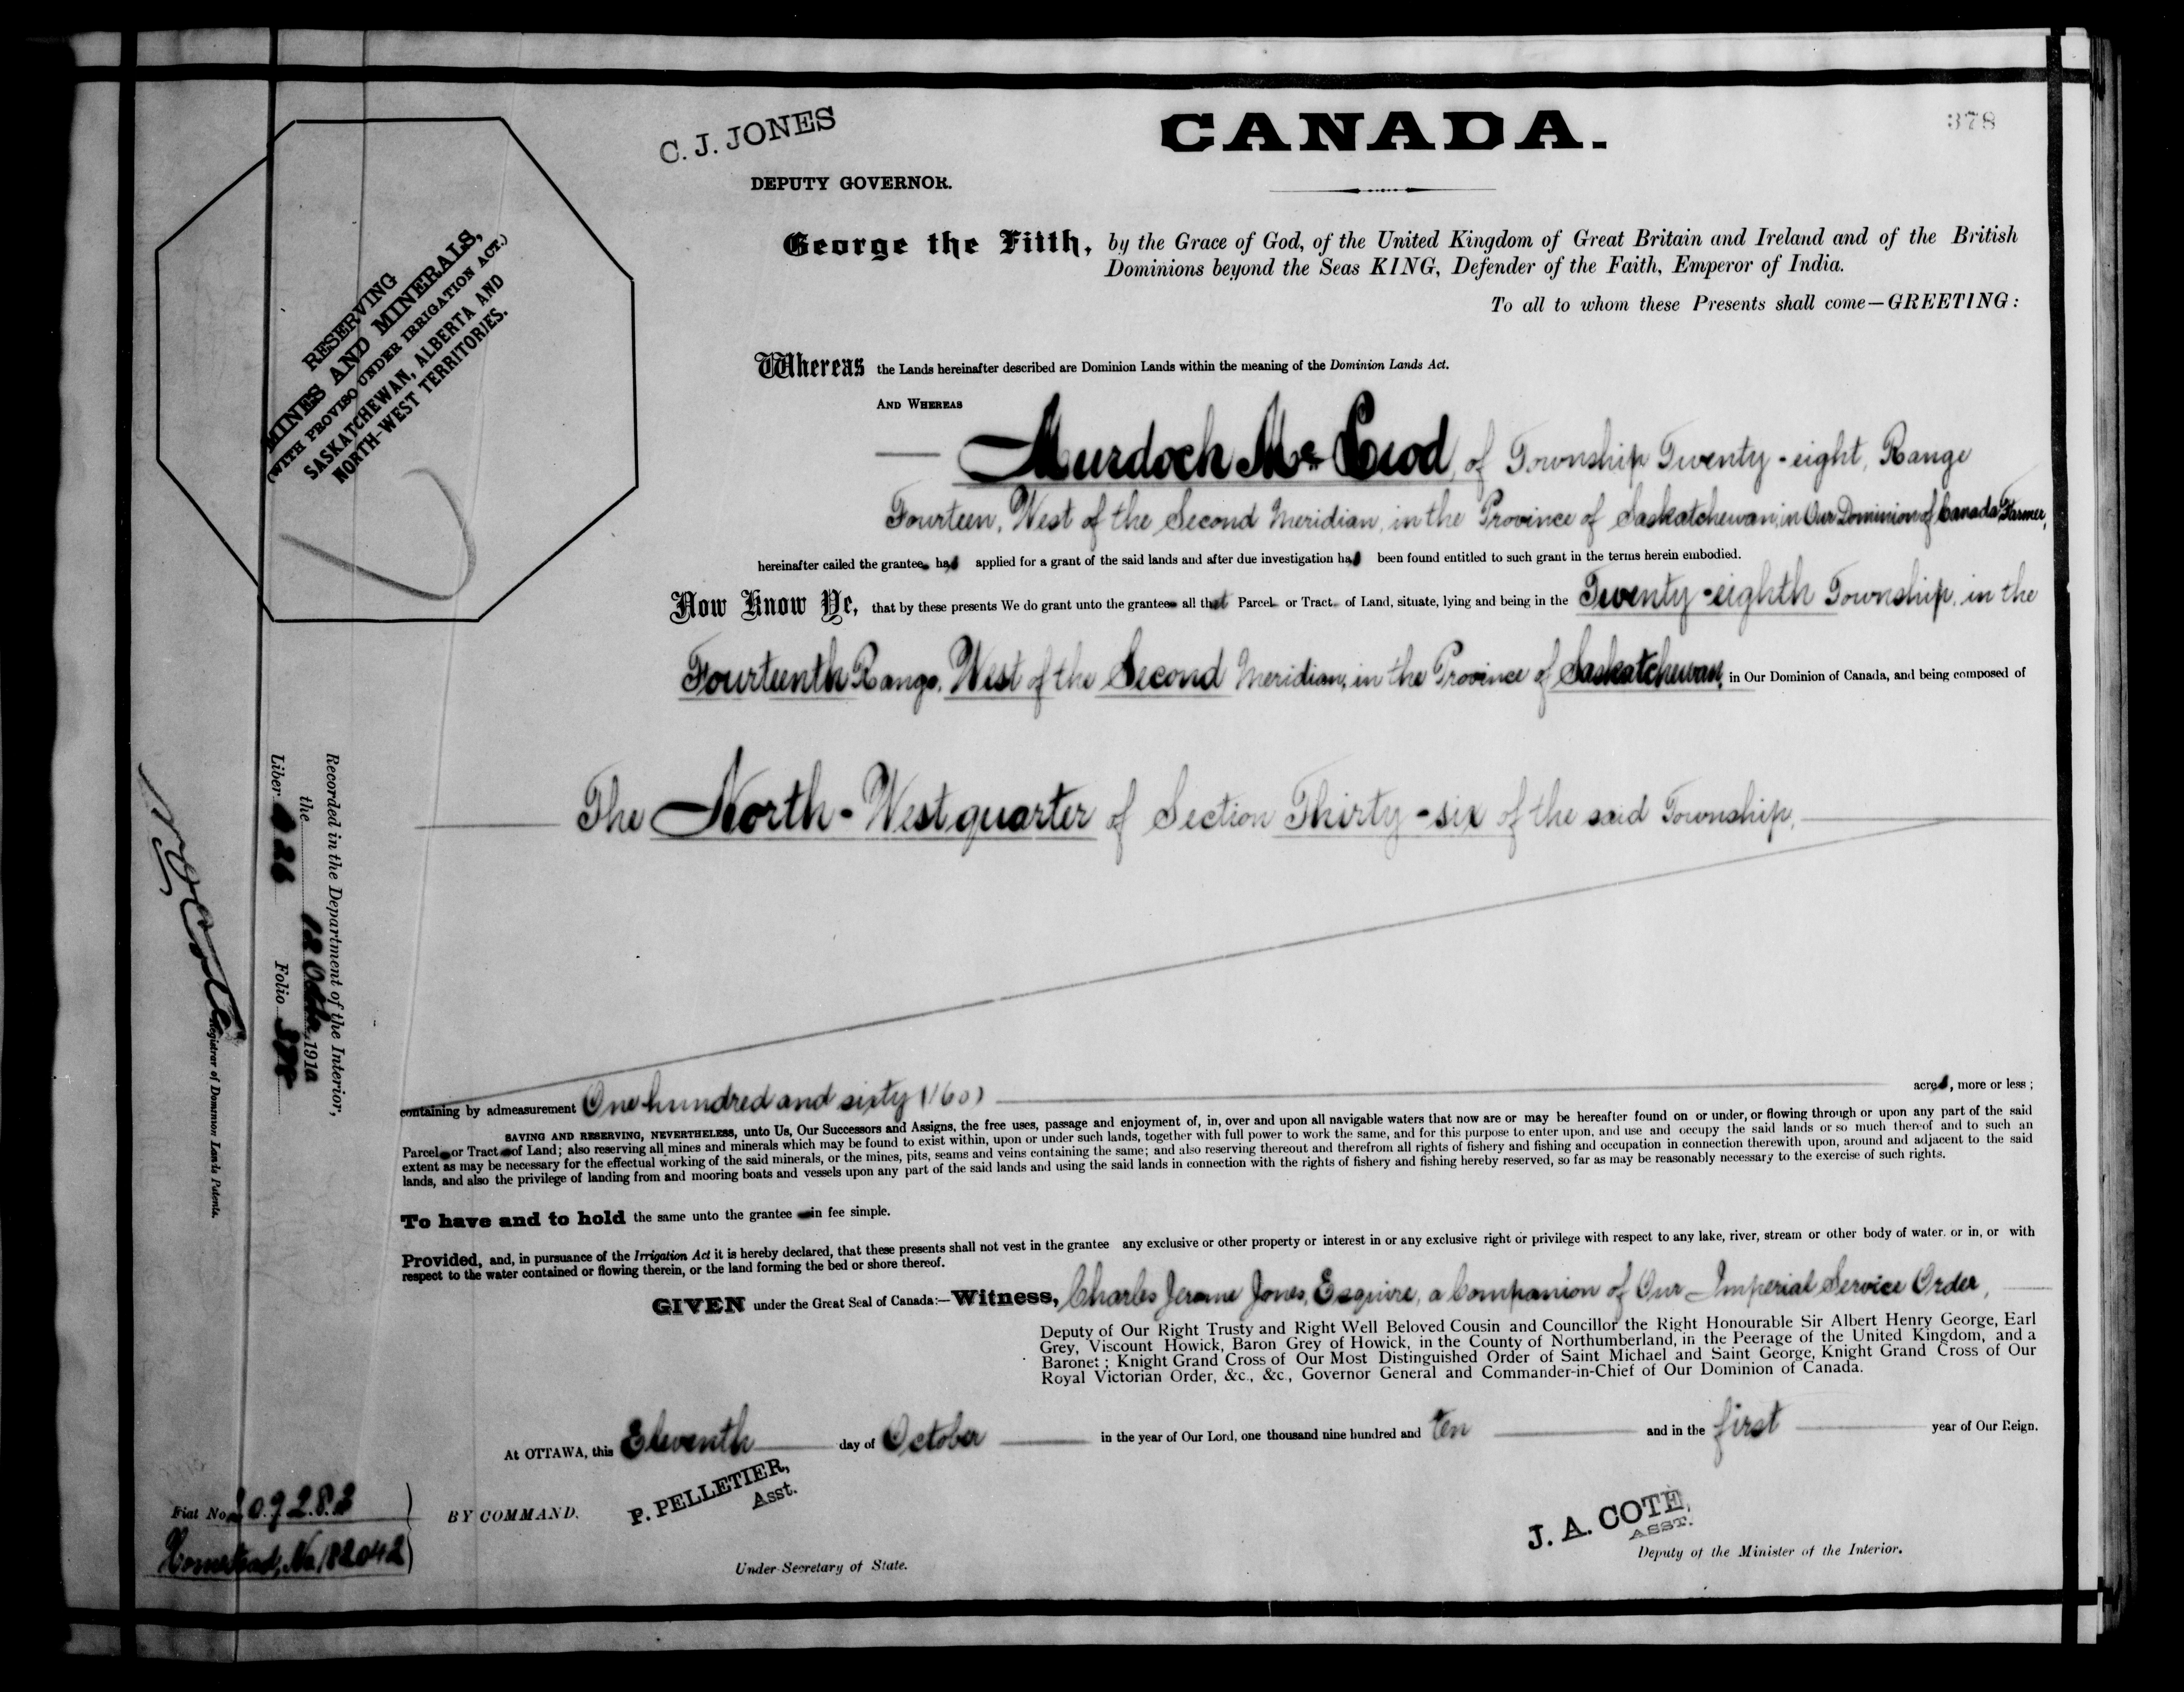 378
C. J. JONES
CANADA.
DEPUTY GOVERNOR.
George the Fifth, by the Grace of God, of the United Kingdom of Great Britain and Ireland and of the British
Dominions beyond the Seas KING, Defender of the Faith, Emperor of India.
To all to whom these Presents shall come—GREETING:
RESERVING
MINES AND MINERALS,
(WITH PROVISO UNDER IRRIGATION ACT.)
SASKATCHEWAN, ALBERTA AND
NORTH-WEST TERRITORIES.
Whereas the Lands hereinafter described are Dominion Lands within the meaning of the Dominion Lands Act.
AND WHEREAS
Murdoch McLeod, of Township Twenty-eight, Range
Fourteen, West of the Second Meridian, in the Province of Saskatchewan, in Our Dominion of Canada, Farmer,
hereinafter called the grantee has applied for a grant of the said lands and after due investigation has been found entitled to such grant in the terms herein embodied.
Now Know Ye, that by these presents We do grant unto the grantee all that Parcel or Tract of Land, situate, lying and being in the Twenty-eighth Township, in the
Fourteenth Range, West of the Second Meridian, in the Province of Saskatchewan, in Our Dominion of Canada, and being composed of
The North-West quarter of Section Thirty-six of the said Township,
containing by admeasurement One hundred and sixty (160) acres, more or less;
SAVING AND RESERVING, NEVERTHELESS, unto Us, Our Successors and Assigns, the free uses, passage and enjoyment of, in, over and upon all navigable waters that now are or may be hereafter found on or under, or flowing through or upon any part of the said
Parcel or Tract of Land; also reserving all mines and minerals which may be found to exist within, upon or under such lands, together with full power to work the same, and for this purpose to enter upon, and use and occupy the said lands or so much thereof and to such an
extent as may be necessary for the effectual working of the said minerals, or the mines, pits, seams and veins containing the same; and also reserving thereout and therefrom all rights of fishery and fishing and occupation in connection therewith upon, around and adjacent to the said
lands, and also the privilege of landing from and mooring boats and vessels upon any part of the said lands and using the said lands in connection with the rights of fishery and fishing hereby reserved, so far as may be reasonably necessary to the exercise of such rights.
To have and to hold the same unto the grantee in fee simple.
Provided, and, in pursuance of the Irrigation Act it is hereby declared, that these presents shall not vest in the grantee any exclusive or other property or interest in or any exclusive right or privilege with respect to any lake, river, stream or other body of water. or in, or with
respect to the water contained or flowing therein, or the land forming the bed or shore thereof.
GIVEN under the Great Seal of Canada:—Witness, Charles Jerome Jones, Esquire, a Companion of Our Imperial Service Order,
Deputy of Our Right Trusty and Right Well Beloved Cousin and Councillor the Right Honourable Sir Albert Henry George, Earl
Grey, Viscount Howick, Baron Grey of Howick, in the County of Northumberland, in the Peerage of the United Kingdom, and a
Baronet; Knight Grand Cross of Our Most Distinguished Order of Saint Michael and Saint George, Knight Grand Cross of Our
Royal Victorian Order, &c., &c., Governor General and Commander-in-Chief of Our Dominion of Canada.
At OTTAWA, this Eleventh day of October in the year of Our Lord, one thousand nine hundred and ten and in the first year of Our Reign.
BY COMMAND.
P. PELLETIER,
Asst.
Under-Secretary of State.
J. A. COTE,
ASST.
Deputy of the Minister of the Interior.
Recorded in the Department of the Interior,
the 12 October, 1910
Liber 226 Folio 378
N. O. Coté
Registrar of Dominion Lands Patents.
Fiat No. 209283
Homestead, No. 182042